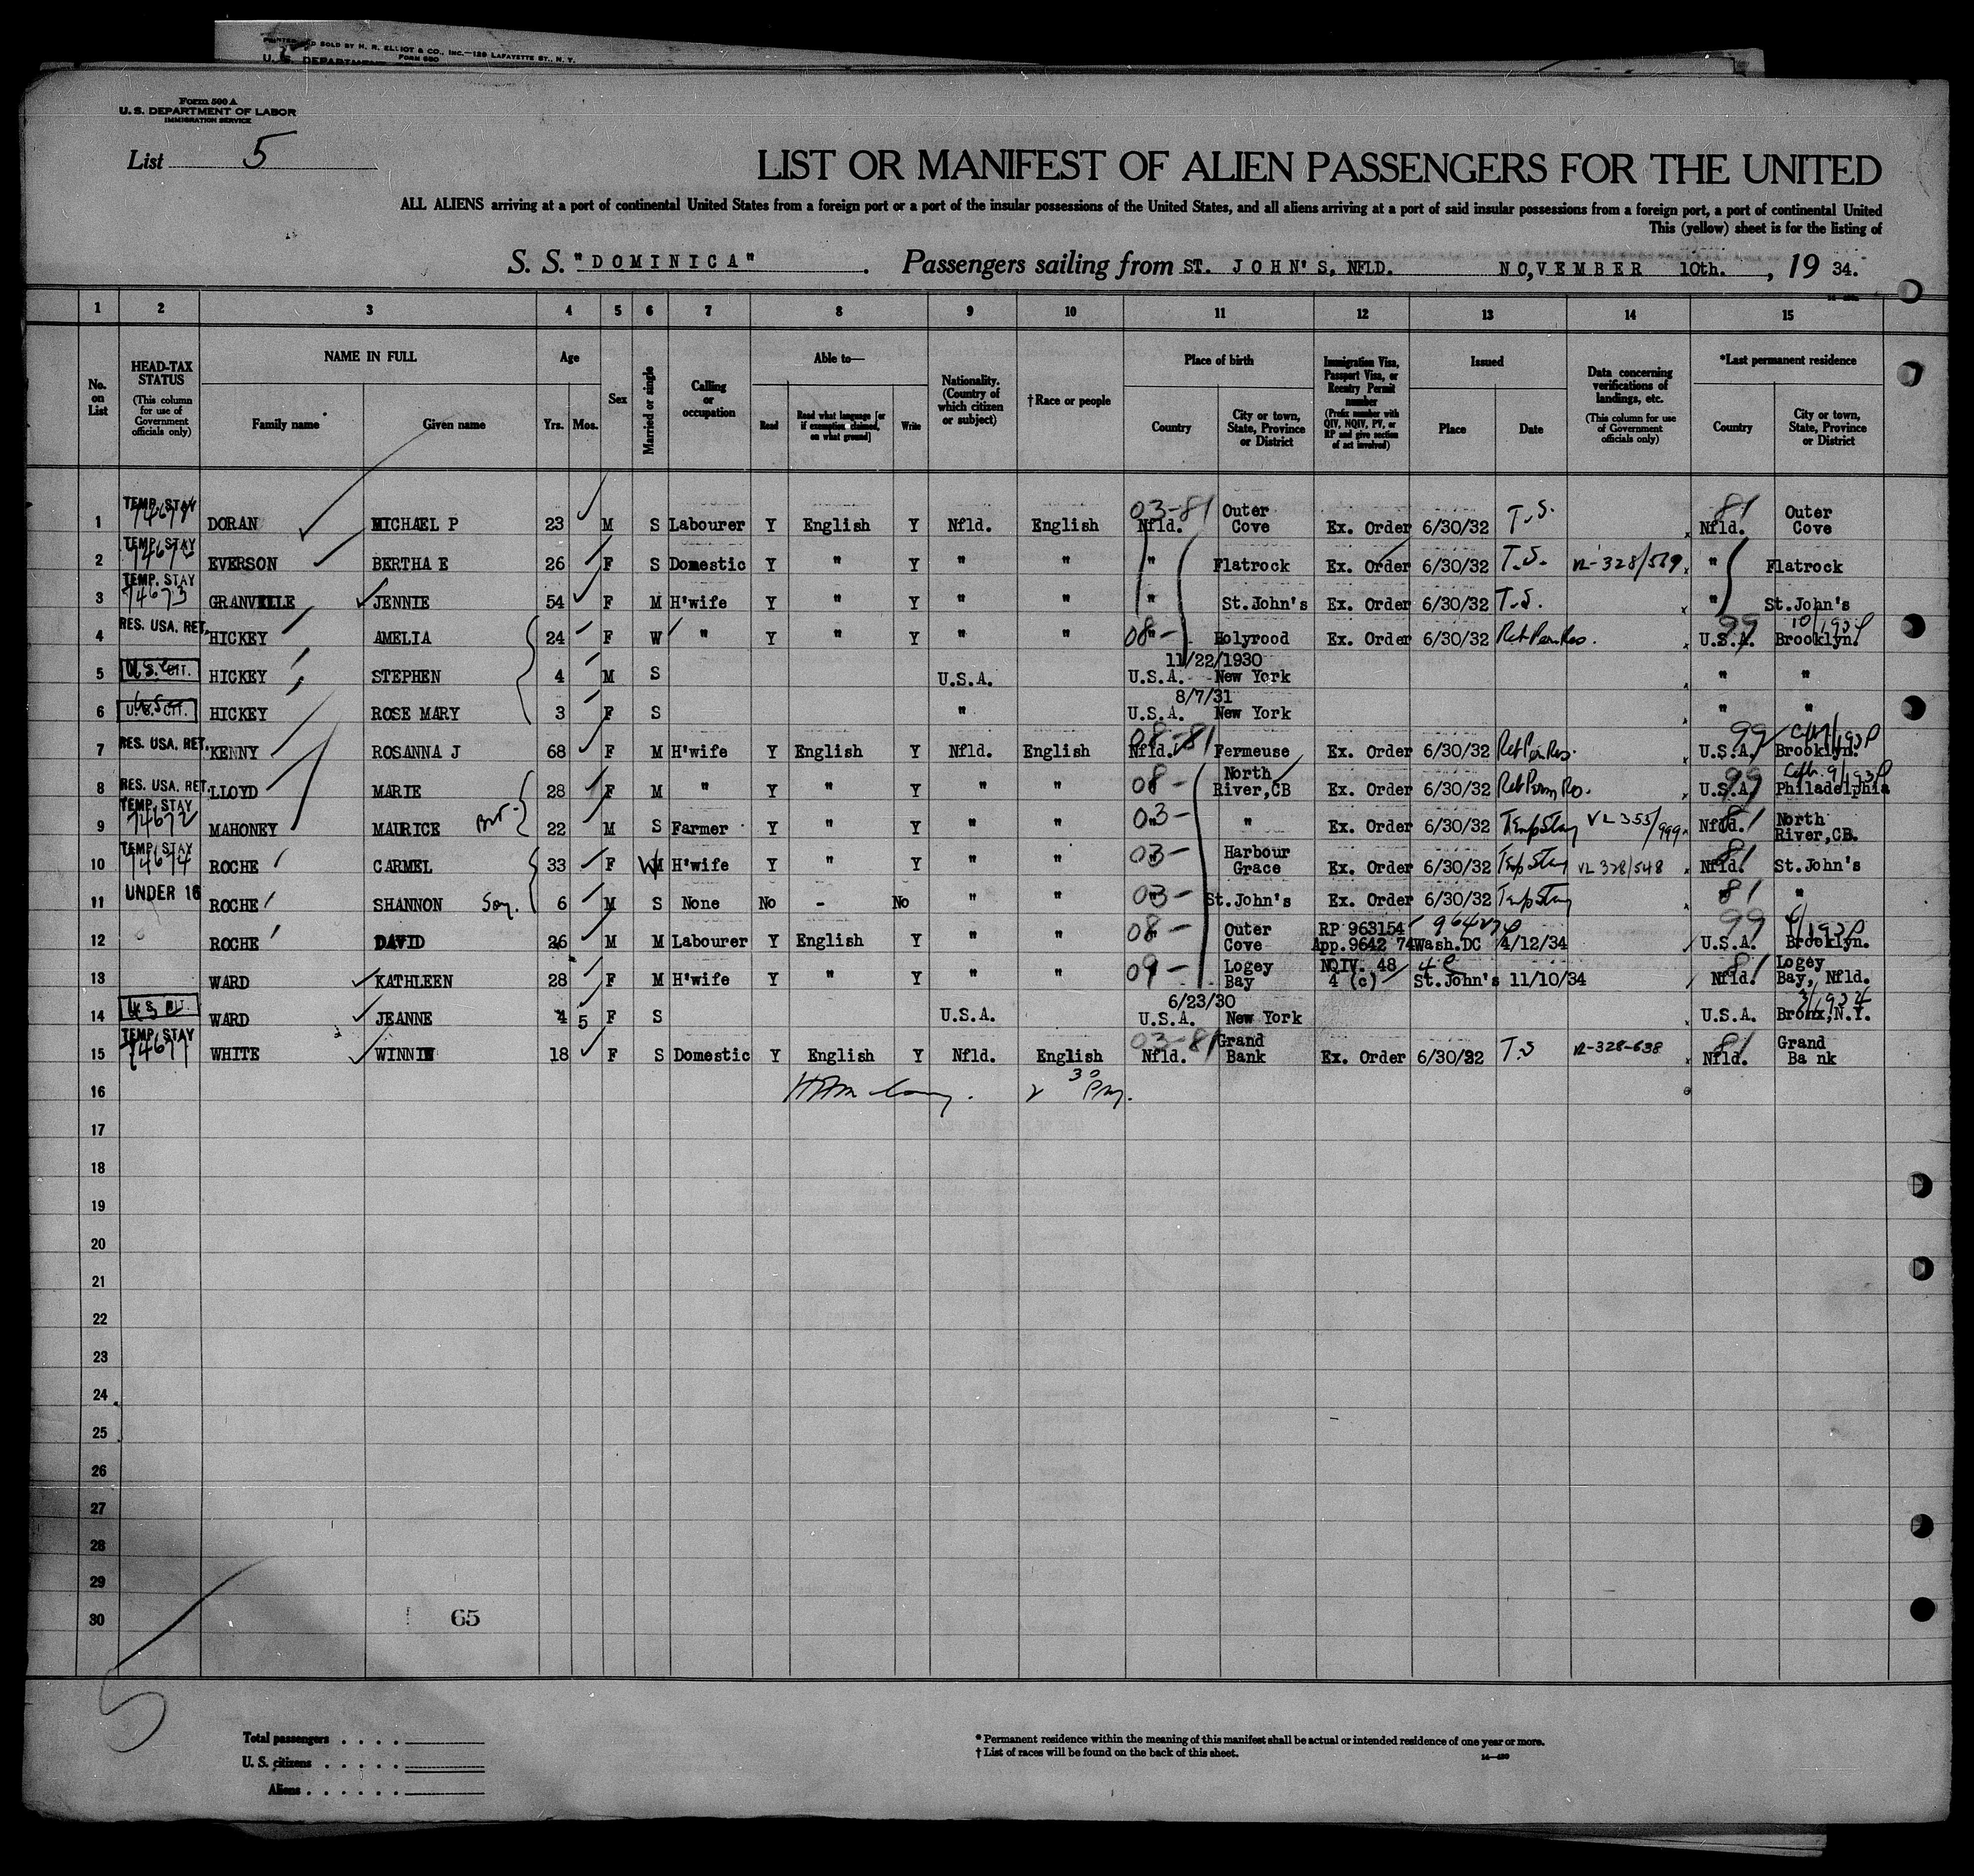 PRINTED AND SOLD BY H. R. ELLIOT & CO., INC.—129 LAFAYETTE ST., N. Y.
U. S. DEPARTMENT FORM 680
Form 500 A
U. S. DEPARTMENT OF LABOR
IMMIGRATION SERVICE
List 5
LIST OR MANIFEST OF ALIEN PASSENGERS FOR THE UNITED
ALL ALIENS arriving at a port of continental United States from a foreign port or a port of the insular possessions of the United States, and all aliens arriving at a port of said insular possessions from a foreign port, a port of continental United
This (yellow) sheet is for the listing of
S. S. "DOMINICA" . Passengers sailing from ST. JOHN'S, NFLD. NO,VEMBER 10th. , 19 34.
1 2 3 4 5 6 7 8 9 10 11 12 13 14 15
No. on List
HEAD-TAX STATUS (This column for use of Government officials only)
NAME IN FULL Family name Given name
Age Yrs. Mos.
Sex
Married or single
Calling or occupation
Able to— Read Read what language [or if exemption claimed, on what ground] Write
Nationality. (Country of which citizen or subject)
†Race or people
Place of birth Country City or town, State, Province or District
Immigration Visa, Passport Visa, or Reentry Permit number (Prefix number with QIV, NQIV, PV, or RP and give section of act involved)
Issued Place Date
Data concerning verifications of landings, etc. (This column for use of Government officials only)
*Last permanent residence Country City or town, State, Province or District
1 TEMP. STAY DORAN MICHAEL P 23 M S Labourer Y English Y Nfld. English 03-81 Nfld. Outer Cove Ex. Order 6/30/32 T.S. 81 Nfld. Outer Cove
2 TEMP. STAY EVERSON BERTHA E 26 F S Domestic Y " Y " " " Flatrock Ex. Order 6/30/32 T.S. VL-328/569 " Flatrock
3 TEMP. STAY 74673 GRANVILLE JENNIE 54 F M H'wife Y " Y " " " St.John's Ex. Order 6/30/32 T.S. " St.John's
4 RES. USA. RET. HICKEY AMELIA 24 F W " Y " Y " " 08- " Holyrood Ex. Order 6/30/32 Ret Per. Res. 99 U.S.A. Brooklyn.
5 U.S. CIT. HICKEY STEPHEN 4 M S U.S.A. 11/22/1930 U.S.A. New York " "
6 U.S. CIT. HICKEY ROSE MARY 3 F S " 8/7/31 U.S.A. New York " "
7 RES. USA. RET. KENNY ROSANNA J 68 F M H'wife Y English Y Nfld. English 08-81 Nfld. Fermeuse Ex. Order 6/30/32 Ret Per Res. 99 U.S.A. Brooklyn.
8 RES. USA. RET. LLOYD MARIE 28 F M " Y " Y " " 08- North River,CB Ex. Order 6/30/32 Ret Perm Res. 99 U.S.A. Philadelphia
9 TEMP. STAY 74672 MAHONEY MAURICE Bro- 22 M S Farmer Y " Y " " 03- " " Ex. Order 6/30/32 Temp Stay VL 353/999 81 Nfld. North River,CB.
10 TEMP. STAY 74674 ROCHE CARMEL 33 F W M H'wife Y " Y " " 03- " Harbour Grace Ex. Order 6/30/32 Temp Stay VL 328/548 81 Nfld. St.John's
11 UNDER 16 ROCHE SHANNON Son. 6 M S None No - No " " 03- " St.John's Ex. Order 6/30/32 Temp Stay 81 " "
12 ROCHE DAVID 26 M M Labourer Y English Y " " 08- " Outer Cove RP 963154 App.9642 74 Wash.DC 4/12/34 99 U.S.A. Brooklyn.
13 WARD KATHLEEN 28 F M H'wife Y " Y " " 09- Logey Bay NQIV. 48 4 (c) 4c St.John's 11/10/34 81 Nfld. Logey Bay, Nfld.
14 U.S. CIT. WARD JEANNE 4 5 F S U.S.A. 6/23/30 U.S.A. New York U.S.A. Bronx,N.Y.
15 TEMP. STAY 74671 WHITE WINNIE 18 F S Domestic Y English Y Nfld. English 03-81 Nfld. Grand Bank Ex. Order 6/30/32 T.S VL-328-638 81 Nfld. Grand Ba nk
16 2 30 Pm.
17
18
19
20
21
22
23
24
25
26
27
28
29
30 65
5
Total passengers . . . .
U. S. citizens . . . . .
Aliens . . . . . .
* Permanent residence within the meaning of this manifest shall be actual or intended residence of one year or more.
† List of races will be found on the back of this sheet.
14—430